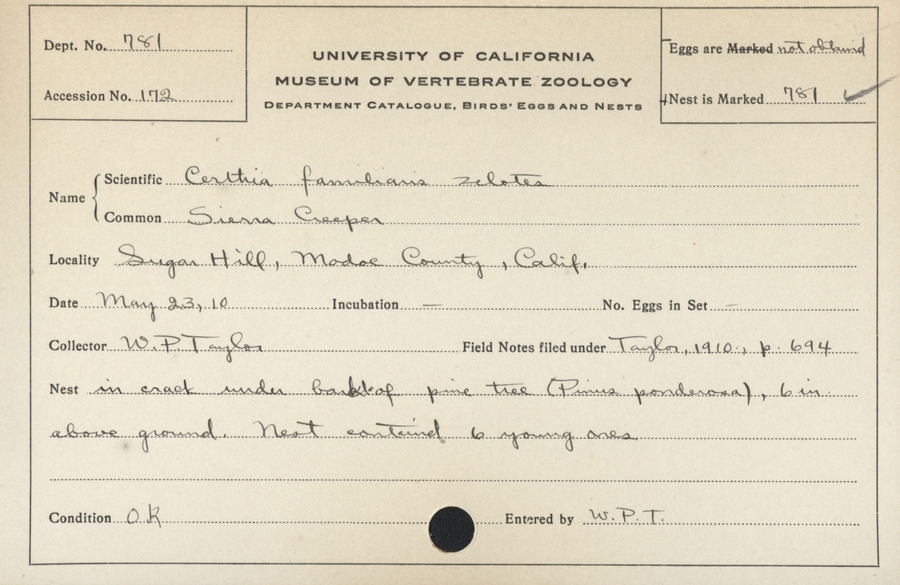 Dept. No. 781
Accession No. 172
UNIVERSITY OF CALIFORNIA
MUSEUM OF VERTEBRATE ZOOLOGY
DEPARTMENT CATALOGUE, BIRDS' EGGS AND NESTS
Eggs are Marked not obtained
Nest is Marked 781
Name
Scientific Certhia familiaris zelotes
Common Sierra Creeper
Locality Sugar Hill, Modoc County, Calif.
Date May 23, 10 Incubation — No. Eggs in Set —
Collector W.P. Taylor Field Notes filed under Taylor, 1910., p. 694
Nest in crack under bark of pine tree (Pinus ponderosa), 6 in.
above ground. Nest contained 6 young ones
Condition OK Entered by W.P.T.